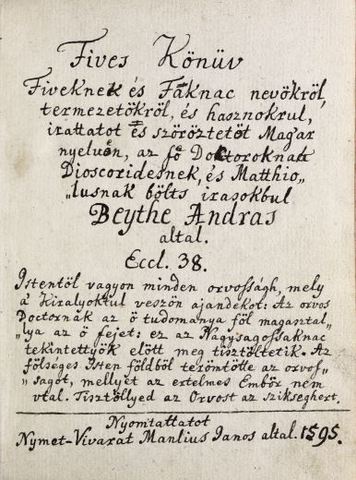 Fives Könüv
Fiveknek és Fáknac nevökröl,
termezetökröl, és hasznokrul,
irattatot és szöröztetöt Magar
nyelvén, az fö Doktoroknak
Dioscoridesnek, és Matthio„
„lusnak bölts irasokbul
Beythe András
által.
Eccl. 38.
Istentöl vagyon minden orvosságh, mely
à Kiralyoktul veszön ajandekot: Az orvos
Doctornak az ö tudománya föl magasztal„
„lya az ö fejet: ez az Nagysagossaknac
tekintettyök elött meg tisztöltetik. Az
fölséges Isten földböl terömtötte az orvos„
„ságot, mellyet az ertelmes Embör nem
vtal. Tisztöllyed az Orvost az szikseghert.
Nyomtattatot
Nymet-Vivarat Manlius Janos által. 1595.